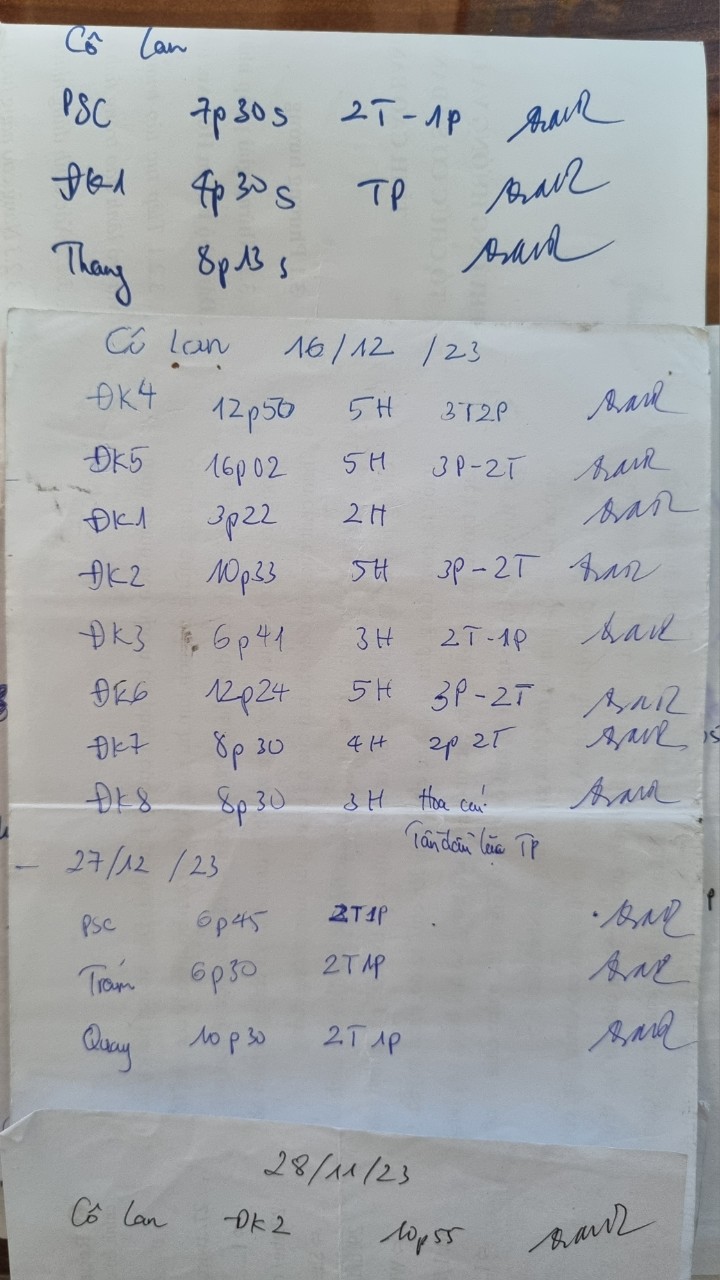 Cô Lan
PSC 7p30s 2T-1P
ĐK1 4p30s TP
Thang 8p13s
Cô Lan 16/12/23
ĐK4 12p50 5H 3T2P
ĐK5 16p02 5H 3P-2T
ĐK1 3p22 2H
ĐK2 10p33 5H 3P-2T
ĐK3 6p41 3H 2T-1P
ĐK6 12p24 5H 3P-2T
ĐK7 8p30 4H 2p 2T
ĐK8 8p30 3H Hoa cái
TP
- 27/12/23
PSC 6p45 2T1P
Trám 6p30 2T1P
Quay 10p30 2T1p
28/11/23
Cô Lan ĐK2 10p55